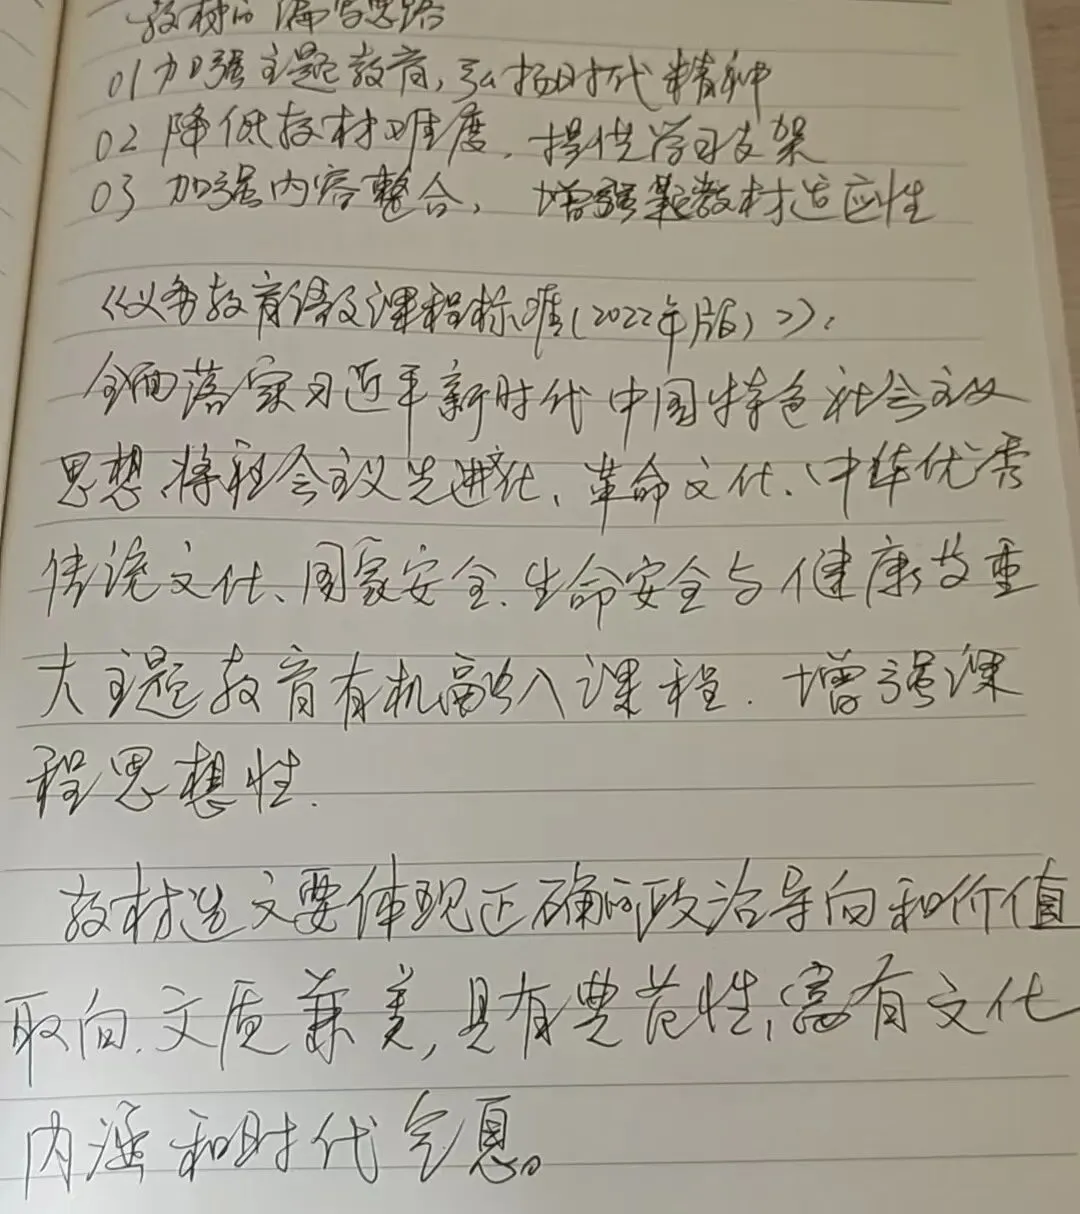 教材的编写思路
01 加强主题教育,弘扬时代精神
02 降低教材难度,提供学习支架
03 加强内容整合, 增强教材适应性
《义务教育语文课程标准(2022年版)》:
全面落实习近平新时代中国特色社会主义
思想,将社会主义先进文化、革命文化、中华优秀
传统文化、国家安全、生命安全与健康等重
大主题教育有机融入课程,增强课
程思想性.
教材选文要体现正确的政治导向和价值
取向,文质兼美,具有典范性,富有文化
内涵和时代气息。